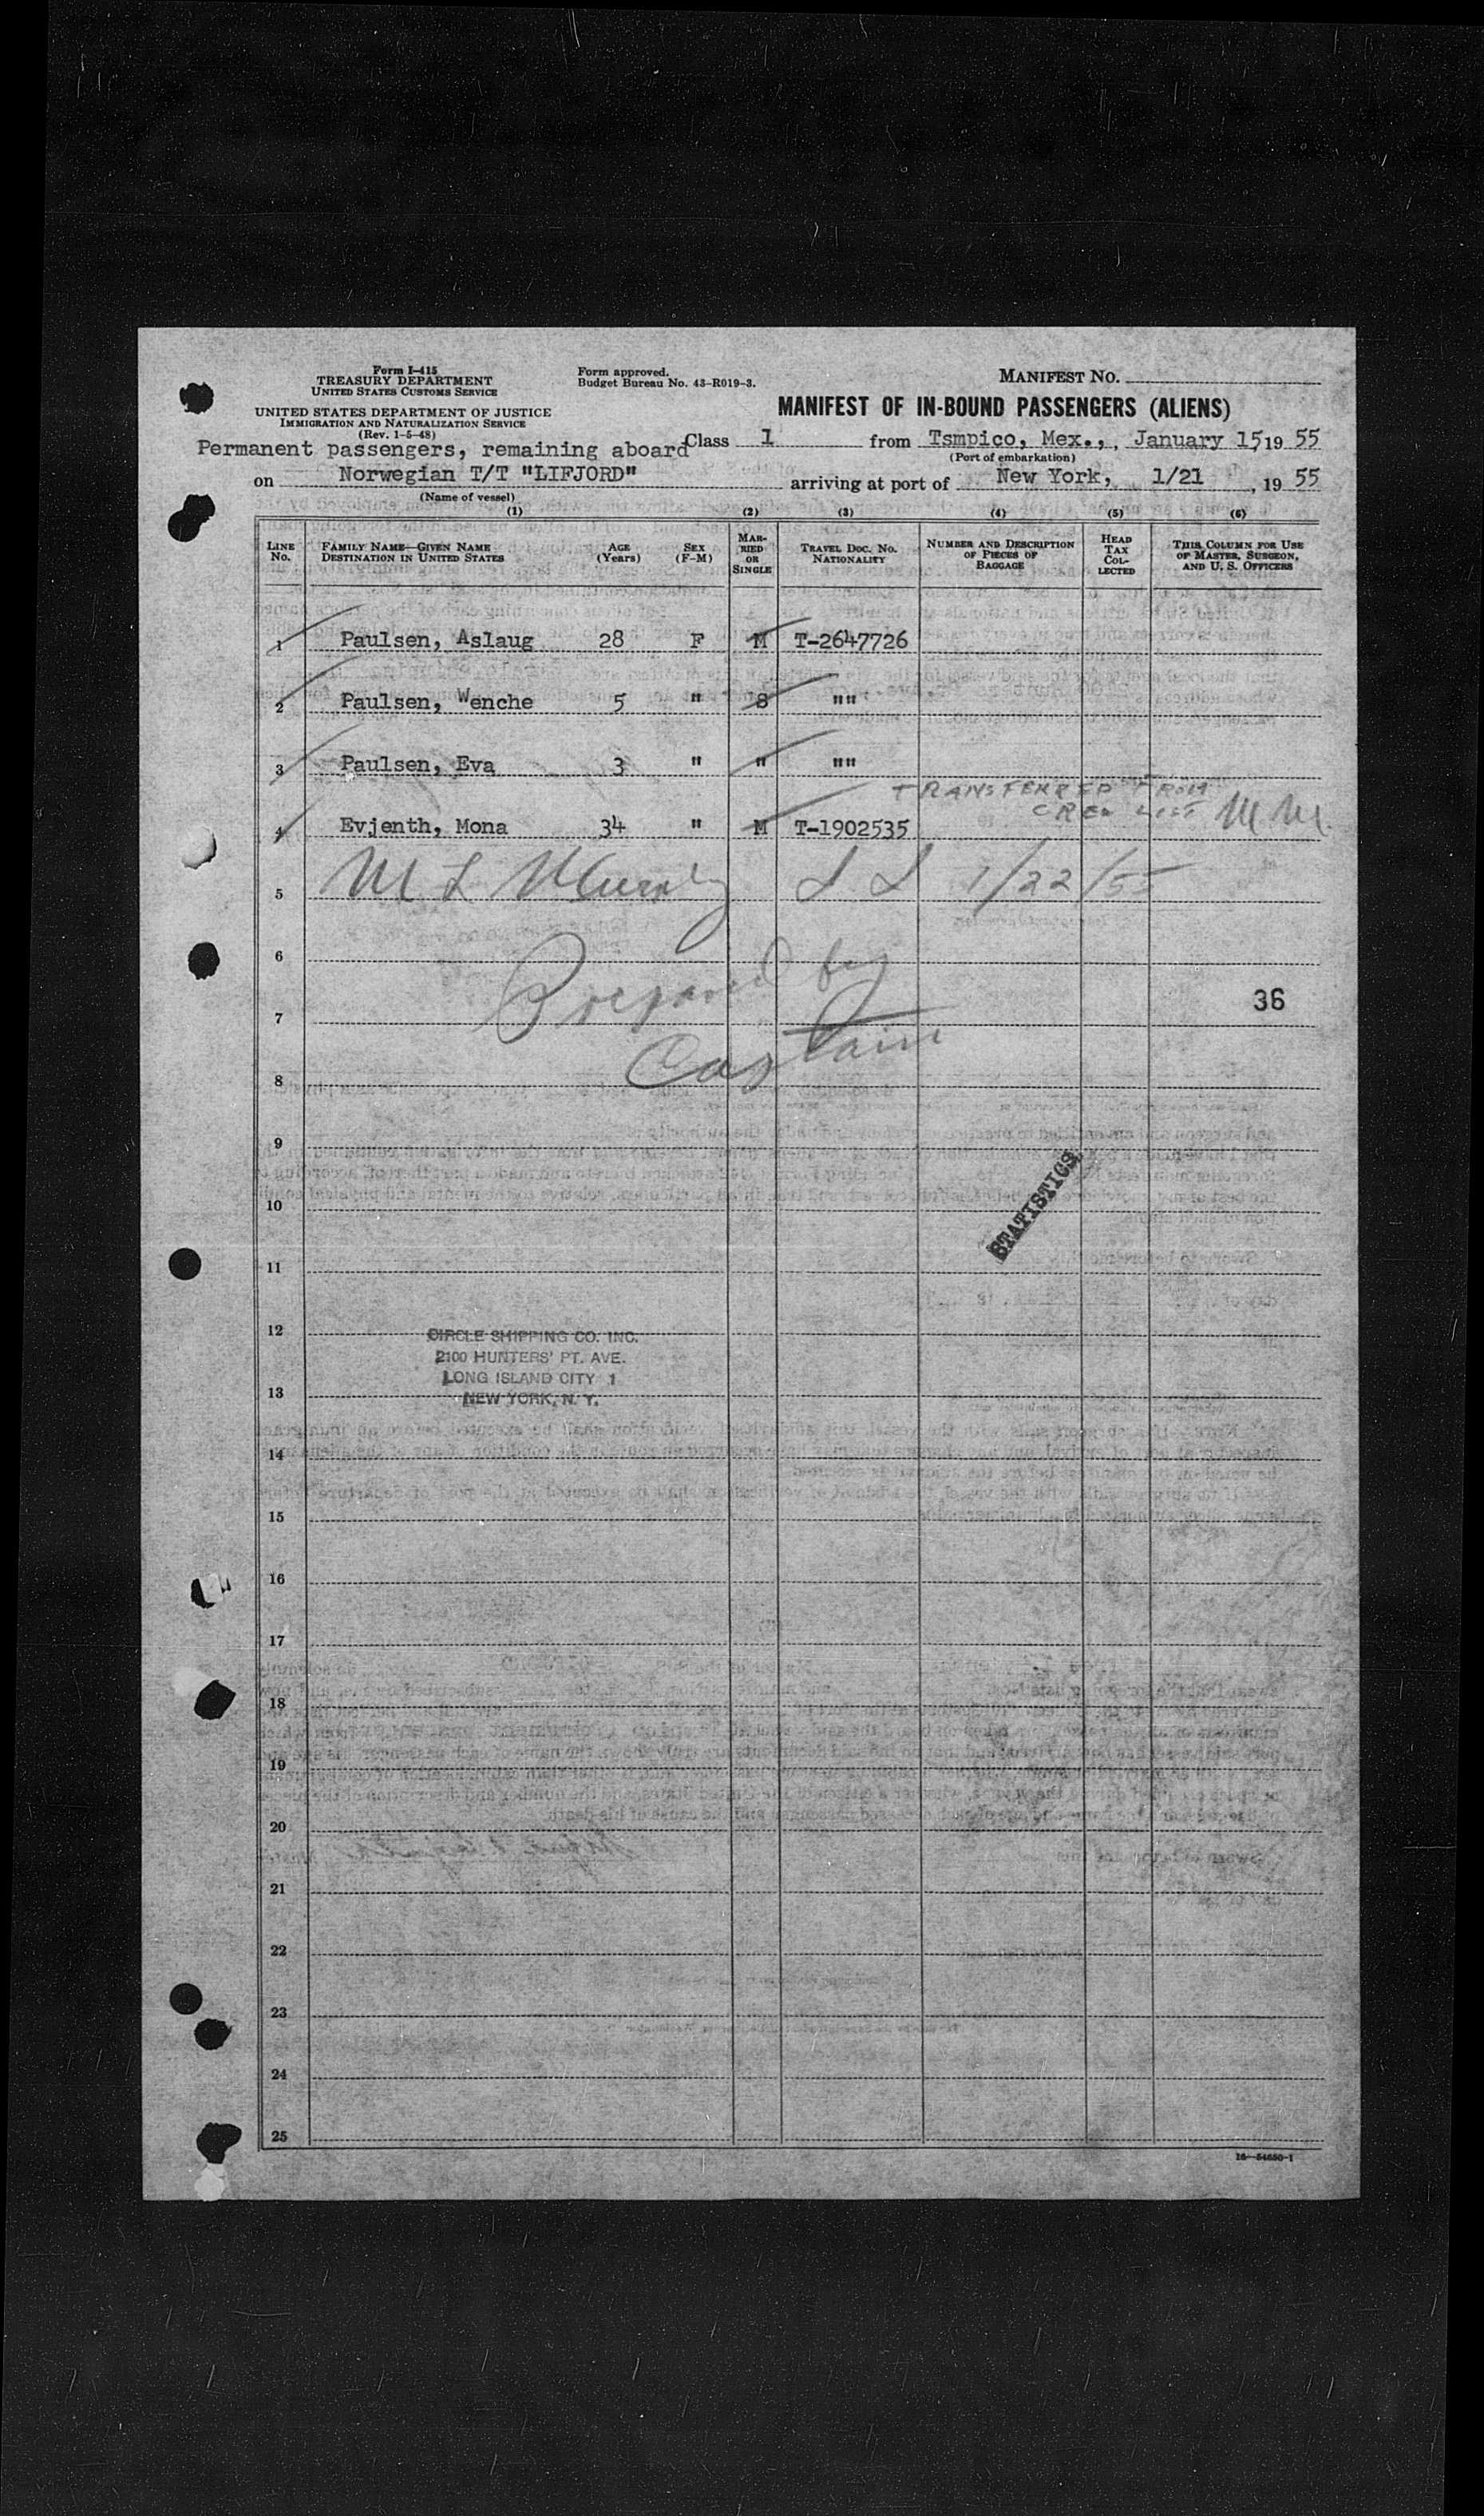 Form I-415
TREASURY DEPARTMENT
UNITED STATES CUSTOMS SERVICE
UNITED STATES DEPARTMENT OF JUSTICE
IMMIGRATION AND NATURALIZATION SERVICE
(Rev. 1-5-48)
Form approved.
Budget Bureau No. 43-R019-3.
MANIFEST NO.
MANIFEST OF IN-BOUND PASSENGERS (ALIENS)
Permanent passengers, remaining aboard Class 1 from Tsmpico, Mex., , January 15, 19 55
(Port of embarkation)
on Norwegian T/T "LIFJORD" arriving at port of New York, 1/21 , 19 55
(Name of vessel)
(1) (2) (3) (4) (5) (6)
LINE NO. FAMILY NAME—GIVEN NAME DESTINATION IN UNITED STATES AGE (Years) SEX (F-M) MARRIED OR SINGLE TRAVEL DOC. NO. NATIONALITY NUMBER AND DESCRIPTION OF PIECES OF BAGGAGE HEAD TAX COLLECTED THIS COLUMN FOR USE OF MASTER, SURGEON, AND U. S. OFFICERS
1 Paulsen, Aslaug 28 F M T-2647726
2 Paulsen, Wenche 5 " S ""
3 Paulsen, Eva 3 " " ""
TRANSFERRED FROM
CREW LIST M.M.
4 Evjenth, Mona 34 " M T-1902535
5 M L Murphy I I 1/22/55
6 Prepared by
7 36
Captain
8
9
STATISTICS
10
11
12 CIRCLE SHIPPING CO. INC.
2100 HUNTERS' PT. AVE.
LONG ISLAND CITY 1
13 NEW YORK, N. Y.
14
15
16
17
18
19
20
21
22
23
24
25
16—54650-1